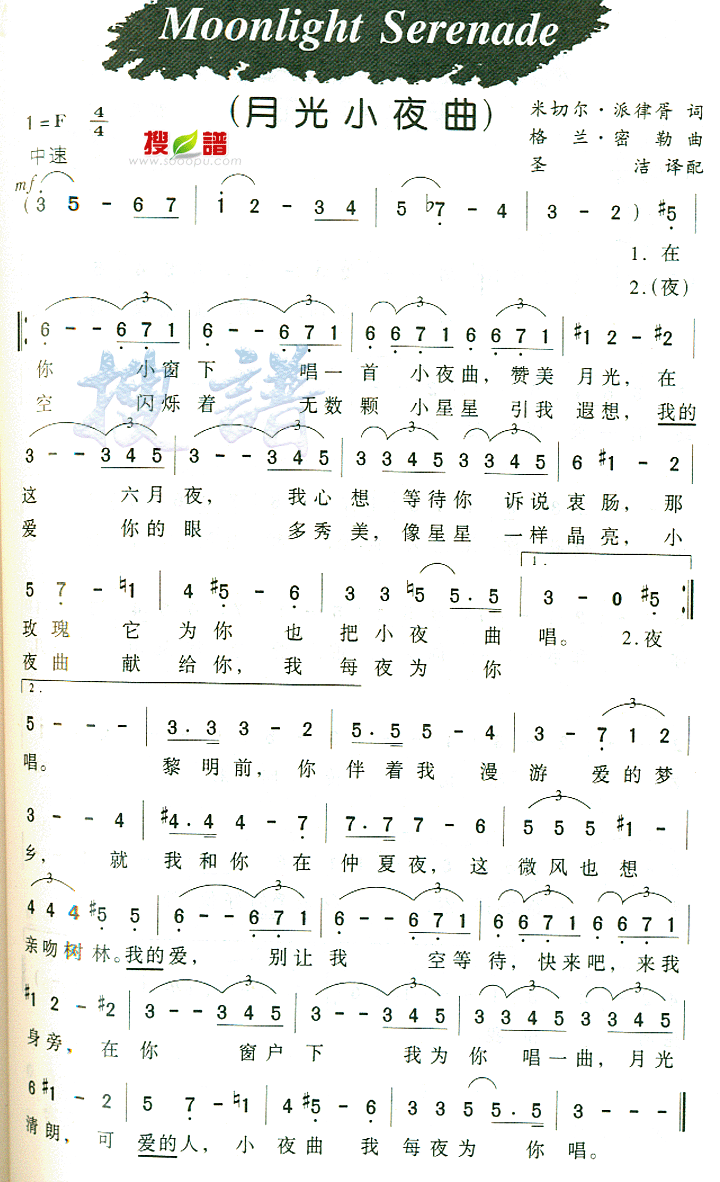 Moonlight Serenade
(月光小夜曲)
1=F 4/4
中速
搜谱
www.sooopu.com
米切尔·派律胥 词
格 兰·密 勒 曲
圣 洁 译配
mf
(3 5 - 6 7 | i 2 - 3 4 | 5 ♭7 - 4 | 3 - 2 ) #5 |
1. 在
2.(夜)
‖: 6 - - 6 7 1 | 6 - - 6 7 1 | 6 6 7 1 6 6 7 1 | #1 2 - #2 |
你 小窗下 唱一首 小夜曲, 赞美 月光, 在
空 闪烁着 无数颗 小星星 引我 遐想, 我的
3 - - 3 4 5 | 3 - - 3 4 5 | 3 3 4 5 3 3 4 5 | 6 #1 - 2 |
这 六月夜, 我心想 等待你 诉说衷肠, 那
爱 你的眼 多秀美, 像星星 一样晶亮, 小
1.
5 7 - ♮1 | 4 #5 - 6 | 3 3 ♮5 5. 5 | 3 - 0 #5 :‖
玫瑰 它 为你 也 把小夜 曲 唱。 2.夜
夜曲 献 给你, 我 每夜为 你
2.
5 - - - | 3. 3 3 - 2 | 5. 5 5 - 4 | 3 - 7 1 2 |
唱。 黎明前, 你 伴着我 漫 游 爱的梦
3 - - 4 | #4. 4 4 - 7 | 7. 7 7 - 6 | 5 5 5 #1 - |
乡, 就 我和你 在 仲夏夜, 这 微风也想
4 4 4 #5 5 | 6 - - 6 7 1 | 6 - - 6 7 1 | 6 6 7 1 6 6 7 1 |
亲吻树林。我的爱, 别让我 空等待, 快来吧, 来我
#1 2 - #2 | 3 - - 3 4 5 | 3 - - 3 4 5 | 3 3 4 5 3 3 4 5 |
身旁, 在你 窗户下 我为你 唱一曲, 月光
6 #1 - 2 | 5 7 - ♮1 | 4 #5 - 6 | 3 3 5 5. 5 | 3 - - - ‖
清朗, 可 爱的人, 小 夜曲 我 每夜为 你 唱。